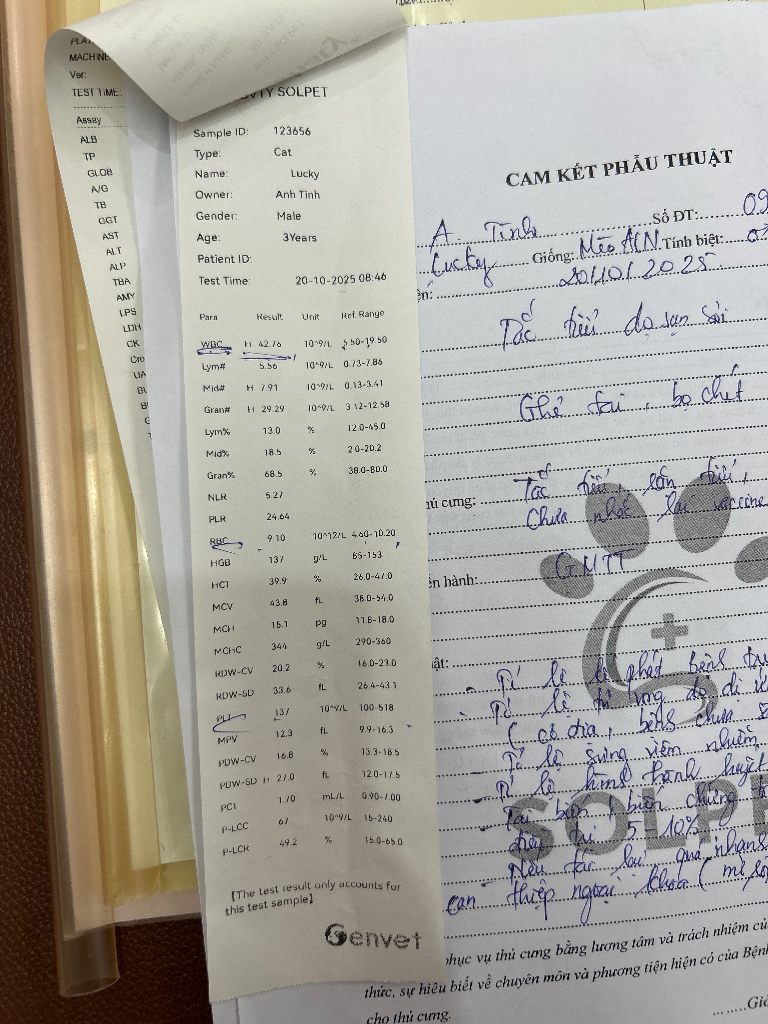 MACHINE
Ver:
TEST TIME:
Assay
ALB
TP
GLOB
A/G
TB
GGT
AST
ALT
ALP
TBA
AMY
LPS
LDH
CK
Cre
UA
SOLPET
Sample ID: 123656
Type: Cat
Name: Lucky
Owner: Anh Tình
Gender: Male
Age: 3Years
Patient ID:
Test Time: 20-10-2025 08:46
Para Result Unit Ref. Range
WBC H 42.76 10^9/L 5.50-19.50
Lym# 5.56 10^9/L 0.73-7.86
Mid# H 7.91 10^9/L 0.13-3.41
Gran# H 29.29 10^9/L 3.12-12.58
Lym% 13.0 % 12.0-45.0
Mid% 18.5 % 2.0-20.2
Gran% 68.5 % 38.0-80.0
NLR 5.27
PLR 24.64
RBC 9.10 10^12/L 4.60-10.20
HGB 137 g/L 85-153
HCT 39.9 % 26.0-47.0
MCV 43.8 fL 38.0-54.0
MCH 15.1 pg 11.8-18.0
MCHC 344 g/L 290-360
RDW-CV 20.2 % 16.0-23.0
RDW-SD 33.6 fL 26.4-43.1
PLT 137 10^9/L 100-518
MPV 12.3 fL 9.9-16.3
PDW-CV 16.8 % 13.3-18.5
PDW-SD H 27.0 fL 12.0-17.5
PCT 1.70 mL/L 0.90-7.00
P-LCC 67 10^9/L 15-240
P-LCR 49.2 % 15.0-65.0
[The test result only accounts for
this test sample]
Genvet
CAM KẾT PHẪU THUẬT
A. Tình Số ĐT: 09
Lucky Giống: Mèo ALN Tính biệt:
20/10/2025
Tắc tiểu do sạn sỏi
Ghẻ tai, bọ chét
thú cưng: Tắc tiểu, sạn tiểu,
Chưa nhắc lại vaccine
ến hành: GMTT
- Tỉ lệ tái phát bệnh
- Tỉ lệ tử vong do dị
( cơ địa, bệnh chưa
- Tỉ lệ sưng viêm nhiễm
- Tỉ lệ
- Tai biến, biến chứng
5-10%
- Nếu tắc lại
can thiệp ngoại khoa (
SOLP
phục vụ thú cưng bằng lương tâm và trách nhiệm củ
thức, sự hiểu biết về chuyên môn và phương tiện hiện có của Bện
cho thú cưng.